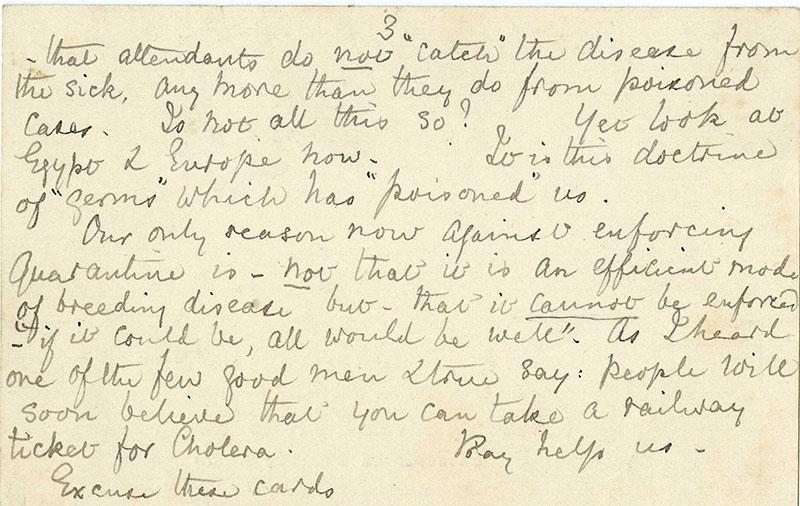 3
- that attendants do not "catch" the disease from
the sick, any more than they do from poisoned
cases. Is not all this so? Yet look at
Egypt & Europe now - It is this doctrine
of "germs" which has "poisoned" us.
Our only reason now against enforcing
Quarantine is - not that it is an efficient mode
of breeding disease but - that it cannot be enforced
- "if it could be, all would be well". As I heard
one of the few good men & true say: people will
soon believe that you can take a railway
ticket for Cholera. Pray help us -
Excuse these cards